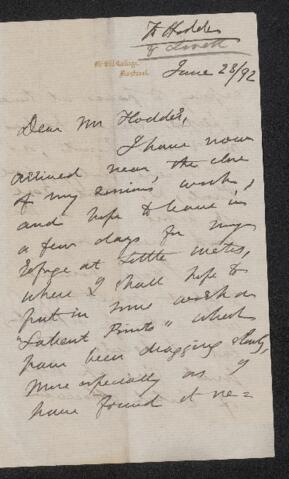 McGill College,
Montreal.
June 28/92
Dear Mr Hodder,
I have now
arrived near the close
of my session's work,
and hope to leave in
a few days for my
refuge at Little Metis,
where I shall hope to
put in some work on
"Salient Points" which
have been dragging slowly,
more especially as I
have found it ne=